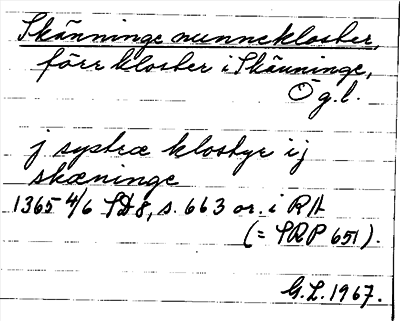 Skänninge nunnekloster,
förr kloster i Skänninge,
Ögl.
j systræ klostyr ij
skæninge
1365 4/6 SD 8, s. 663 or. i RA
(= SRP 651).
G.L. 1967.